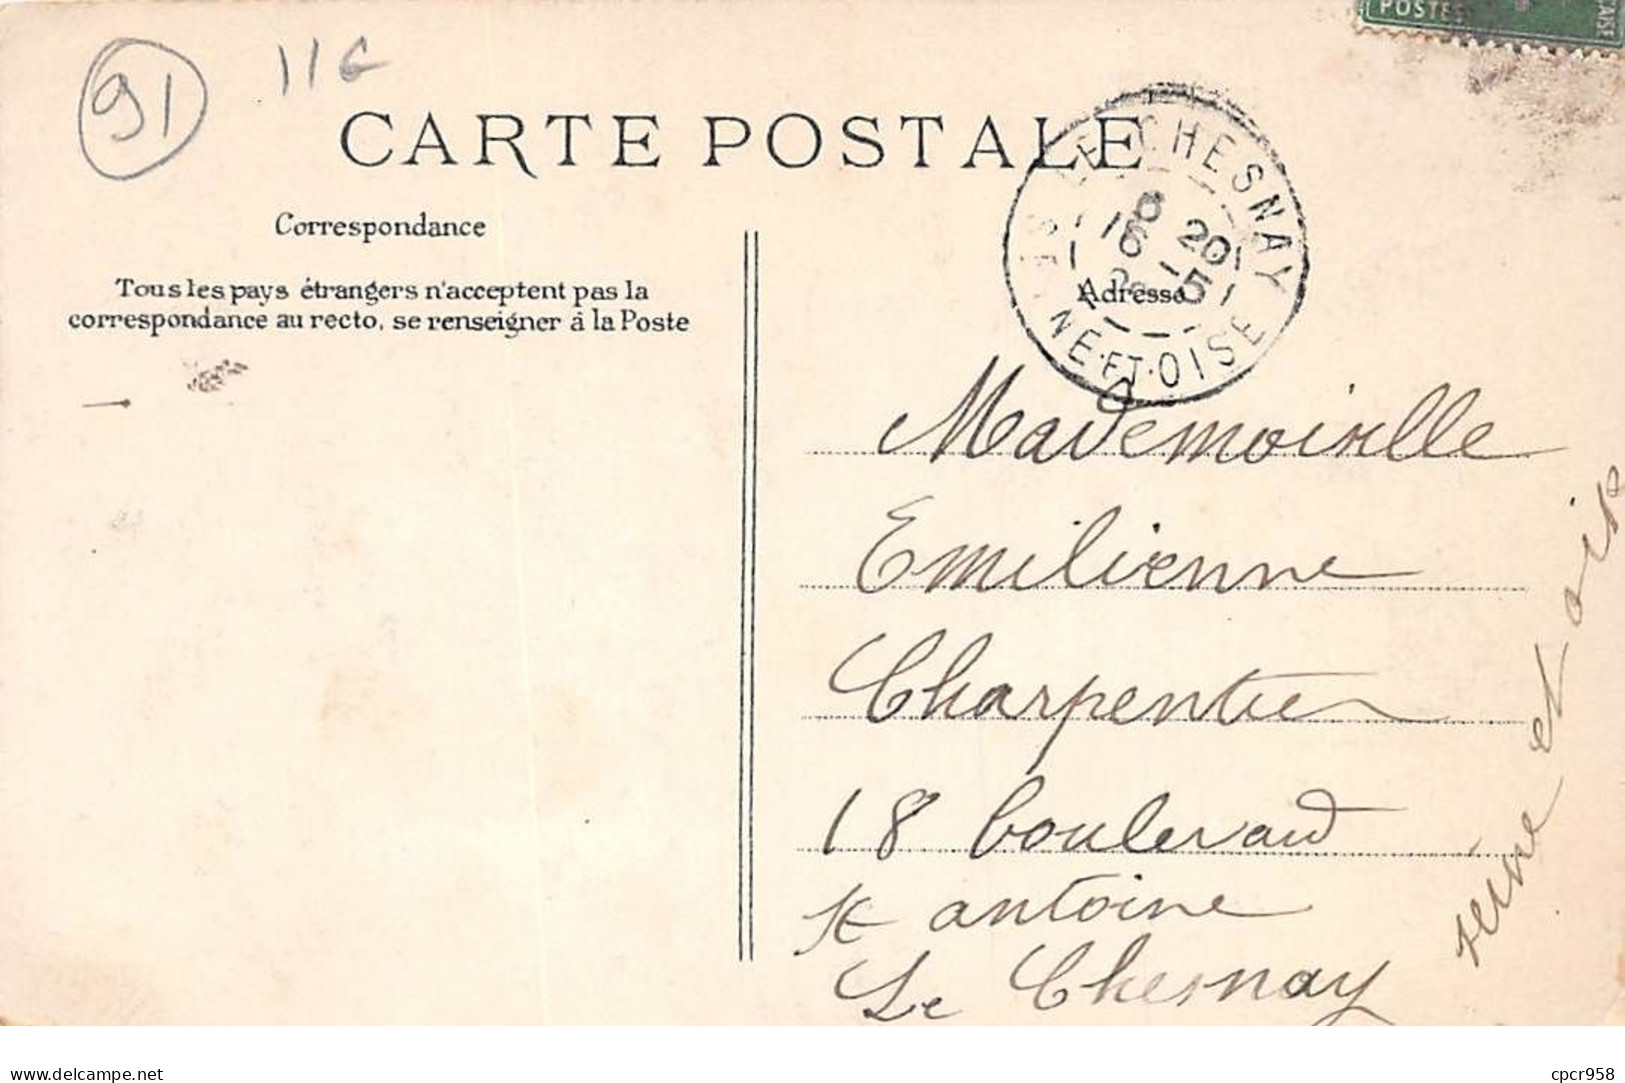 POSTES
91
116
CARTE POSTALE
LE CHESNAY
20
16 -5
NE-ET-OISE
Correspondance
Tous les pays étrangers n'acceptent pas la
correspondance au recto, se renseigner à la Poste
Adresse
Mademoiselle
Emilienne
Charpentier
18 boulevard
St antoine
Le Chesnay
seine et oise
www.delcampe.net
cpcr958